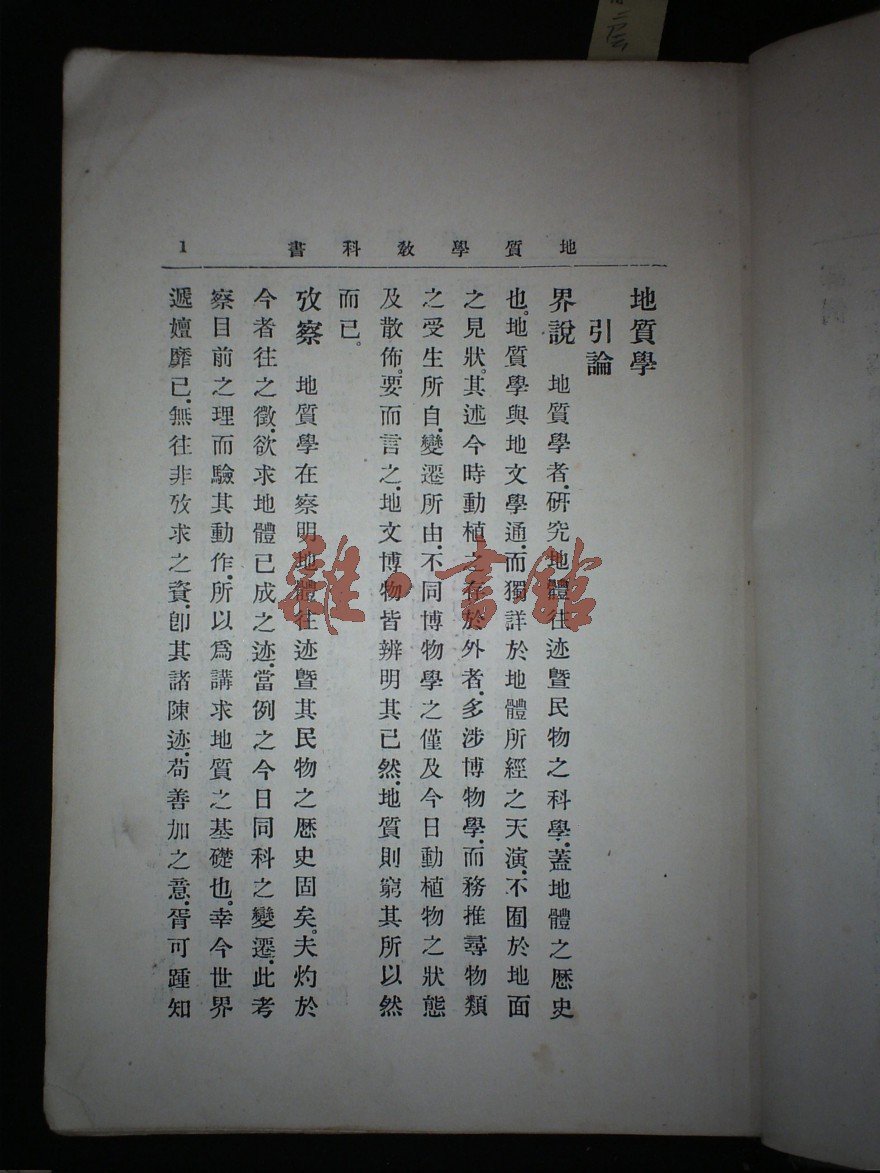 地質學教科書 1
地質學
引論
界說 地質學者、研究地體往迹暨民物之科學、蓋地體之歷史
也。地質學與地文學通、而獨詳於地體所經之天演、不囿於地面
之見狀。其述今時動植之存於外者、多涉博物學、而務推尋物類
之受生所自、變遷所由、不同博物學之僅及今日動植物之狀態
及散佈。要而言之、地文博物皆辨明其已然、地質則窮其所以然
而已。
攷察 地質學在察明地體往迹暨其民物之歷史固矣。夫灼於
今者往之徵、欲求地體已成之迹、當例之今日同科之變遷、此考
察目前之理而驗其動作、所以爲講求地質之基礎也。幸今世界
遞嬗靡已、無往非攷求之資、卽其諸陳迹、苟善加之意、胥可踵知
雜·書館